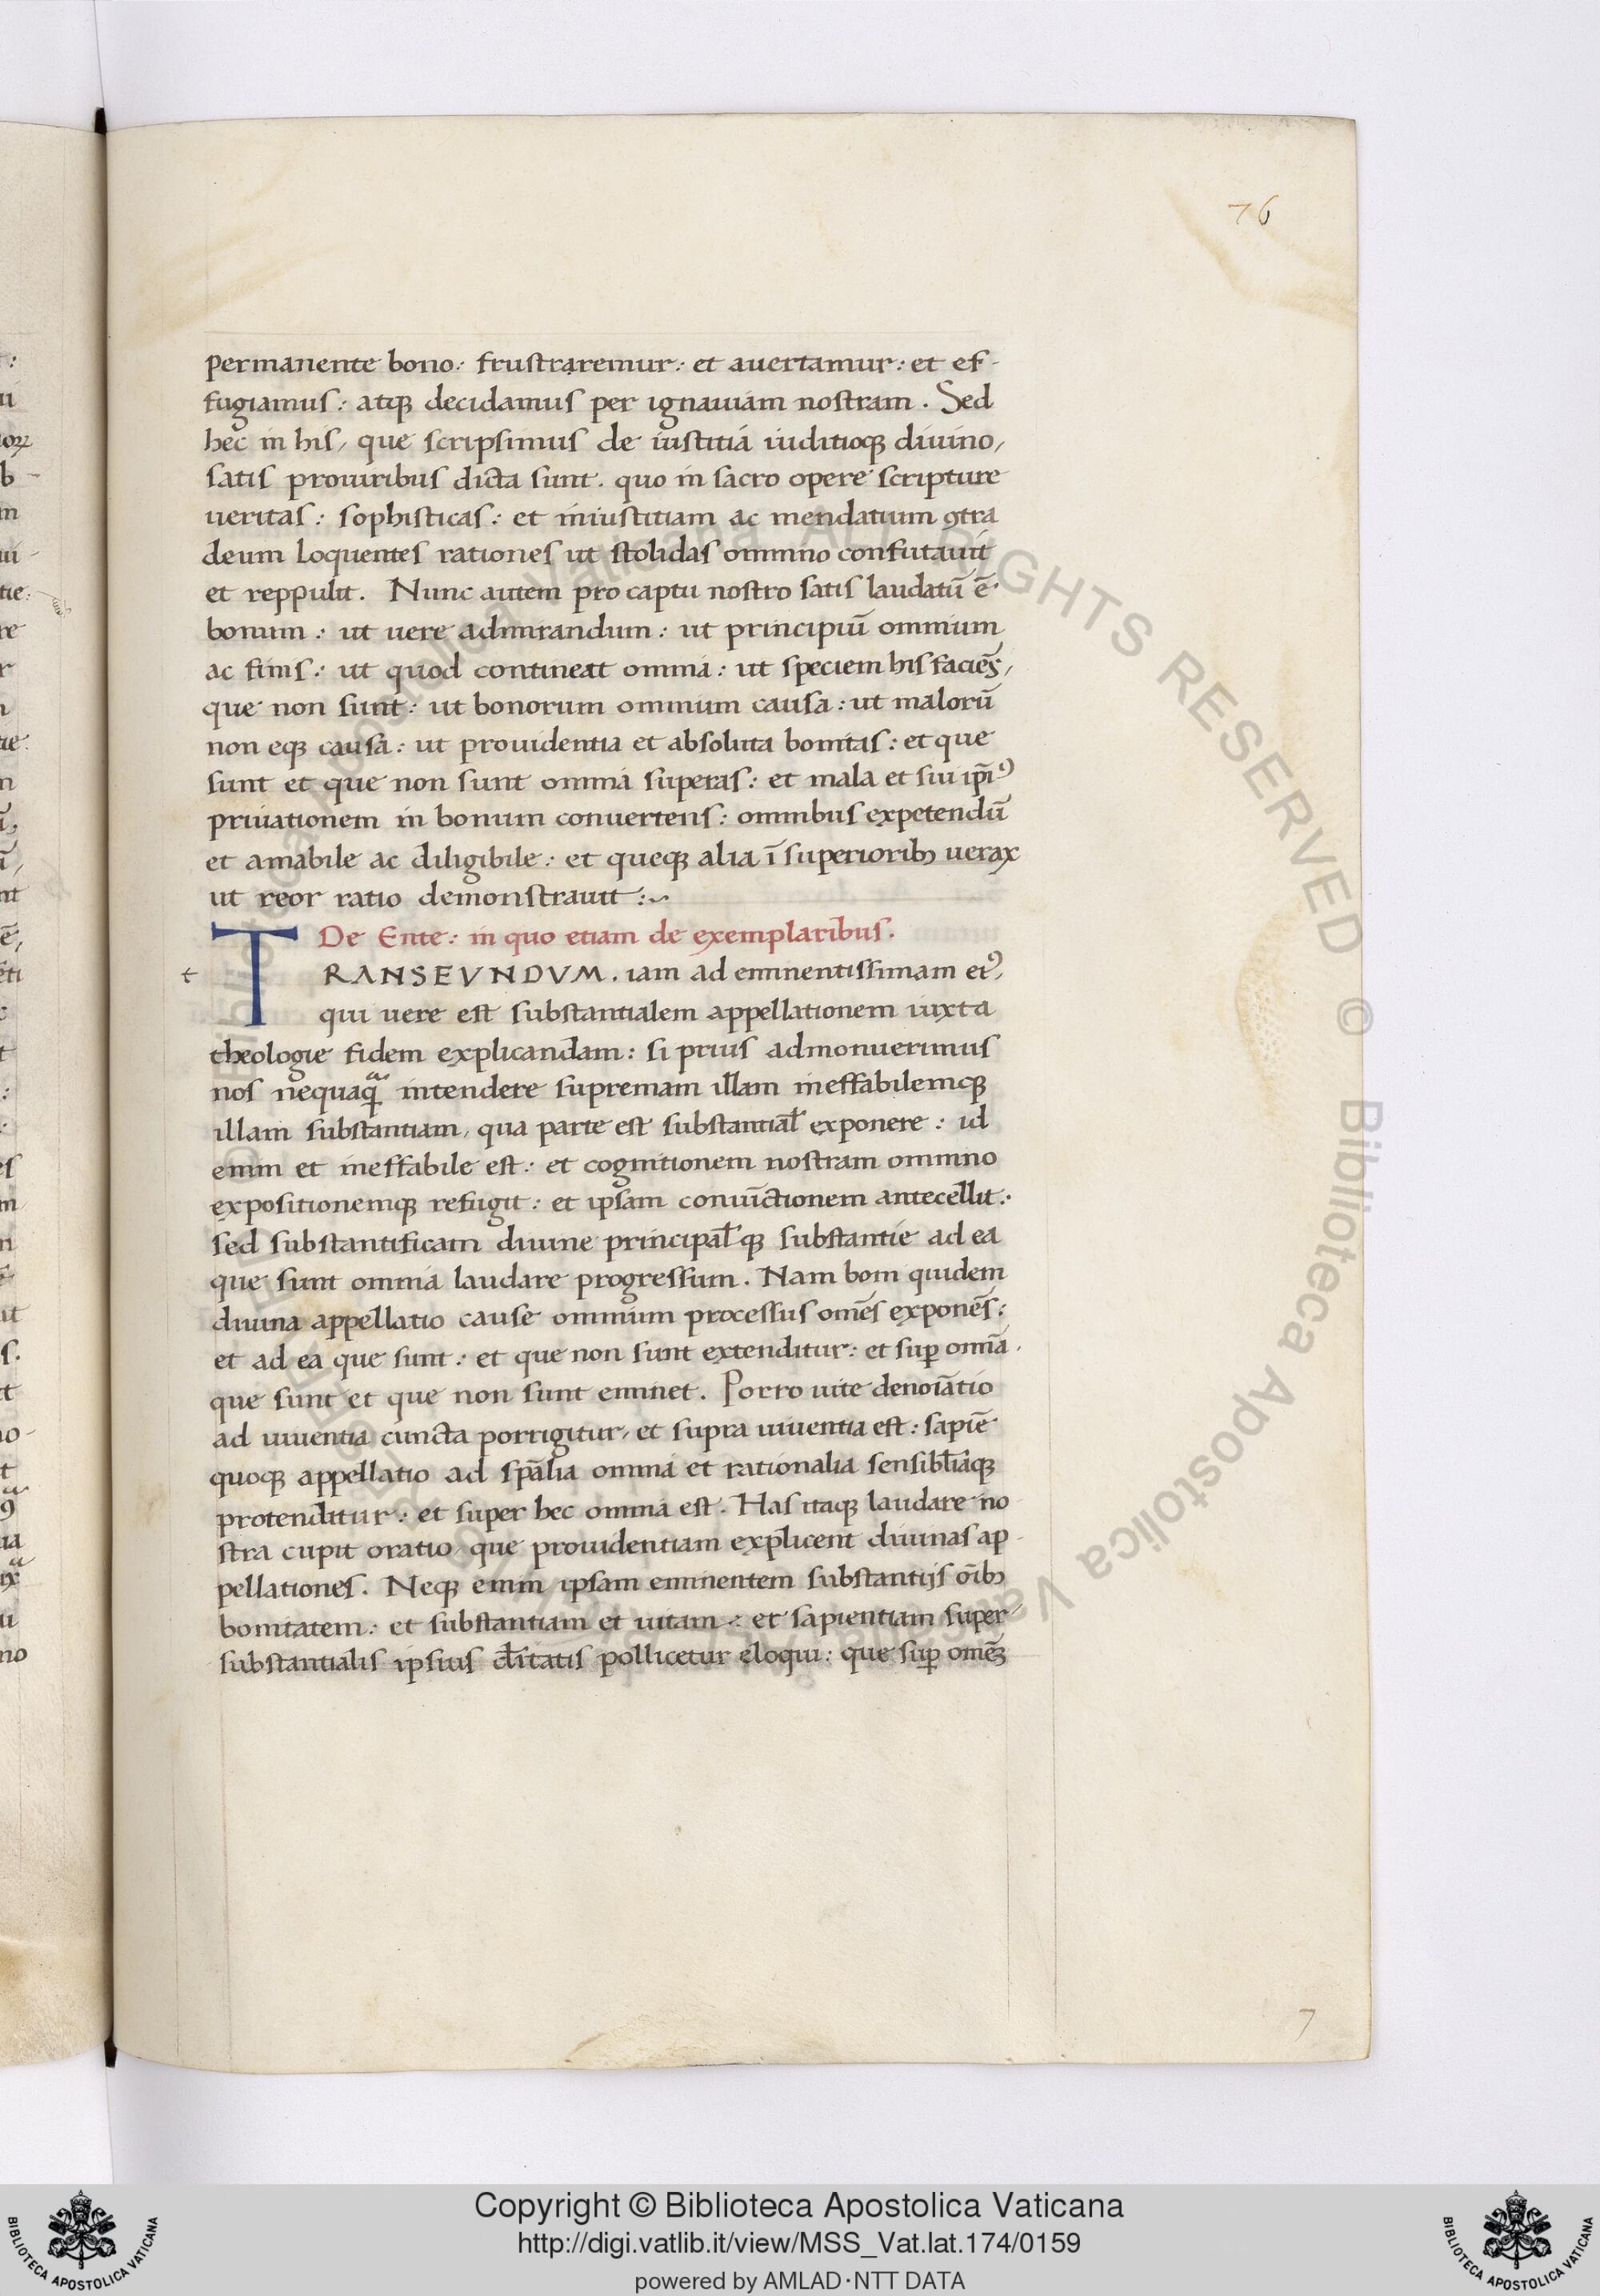 76
permanente bono: frustraremur: et auertamur: et ef-
fugiamus: atq; decidamus per ignauiam nostram. Sed
hec in his, que scripsimus de iustitia iuditioq; diuino,
satis prouiribus dicta sunt. quo in sacro opere scripture
ueritas: sophisticas: et iniustitiam ac mendatium ꝯtra
deum loquentes rationes ut stolidas omnino confutauit
et reppulit. Nunc autem pro captu nostro satis laudatū ē
bonum: ut uere admirandum: ut principiū omnium
ac finis: ut quod contineat omnia: ut speciem his faciēs,
que non sunt: ut bonorum omnium causa: ut malorū
non eq; causa: ut prouidentia et absoluta bonitas: et que
sunt et que non sunt omnia superas: et mala et sui ip̄iꝰ
priuationem in bonum conuertens: omnibus expetendū
et amabile ac diligibile: et queq; alia ī superiorib; uerax
ut reor ratio demonstrauit:~
De Ente: in quo etiam de exemplaribus.
t
TRANSEVNDVM. iam ad eminentissimam eiꝰ,
qui uere est substantialem appellationem iuxta
theologie fidem explicandam: si prius admonuerimus
nos nequaq̃ intendere supremam illam ineffabilemq;
illam substantiam, qua parte est substantial̄ exponere: id
enim et ineffabile est: et cognitionem nostram omnino
expositionemq; refugit: et ipsam conuīctionem antecellit:
sed substantificam diuine principal̄q; substantie ad ea
que sunt omnia laudare progressum. Nam boni quidem
diuina appellatio cause omnium processus om̄es exponēs:
et ad ea que sunt: et que non sunt extenditur: et suꝑ om̄ia
que sunt et que non sunt eminet. Porro uite denoīatio
ad uiuentia cuncta porrigitur, et supra uiuentia est: sapiē
quoq; appellatio ad sp̄alia omnia et rationalia sensibl̄iaq;
protenditur: et super hec omnia est. Has itaq; laudare no
stra cupit oratio, que prouidentiam explicent diuinas ap-
pellationes. Neq; enim ipsam eminentem substantijs oīb;
bonitatem: et substantiam et uitam: et sapientiam super-
substantialis ipsius d̄itatis pollicetur eloqui: que suꝑ omēs
7
Copyright © Biblioteca Apostolica Vaticana
http://digi.vatlib.it/view/MSS_Vat.lat.174/0159
powered by AMLAD·NTT DATA